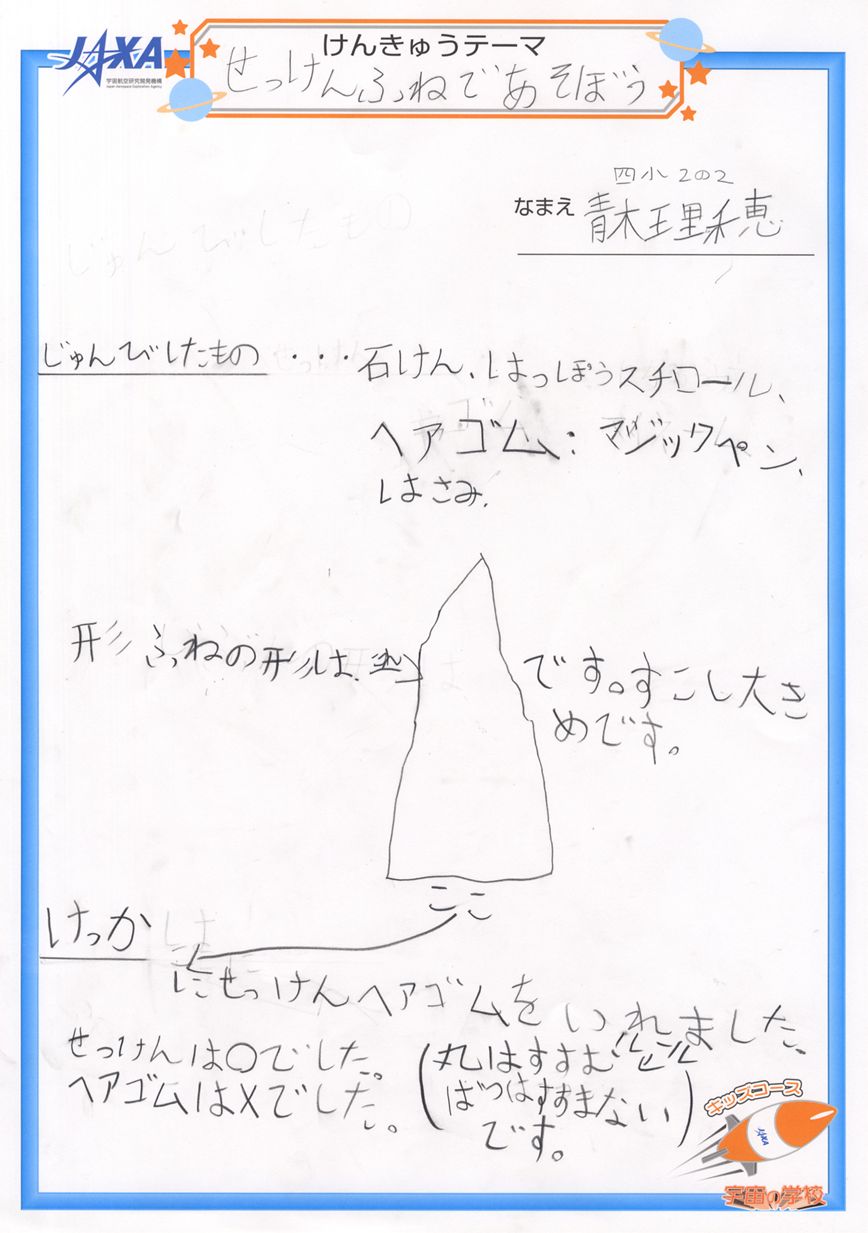 JAXA
宇宙航空研究開発機構
Japan Aerospace Exploration Agency
けんきゅうテーマ
せっけんふねであそぼう
四小 2の2
なまえ 青木王里禾恵
じゅんびしたもの ・・・石けん、はっぽうスチロール、
ヘアゴム、マジックペン、
はさみ、
形 ふねの形は、
です。すこし大き
めです。
ここ
けっか
にせっけんヘアゴムをいれました。
せっけんは○でした。
ヘアゴムは×でした。
(丸はすすむ
ばつはすすまない)
です。
キッズコース
JAXA
宇宙の学校